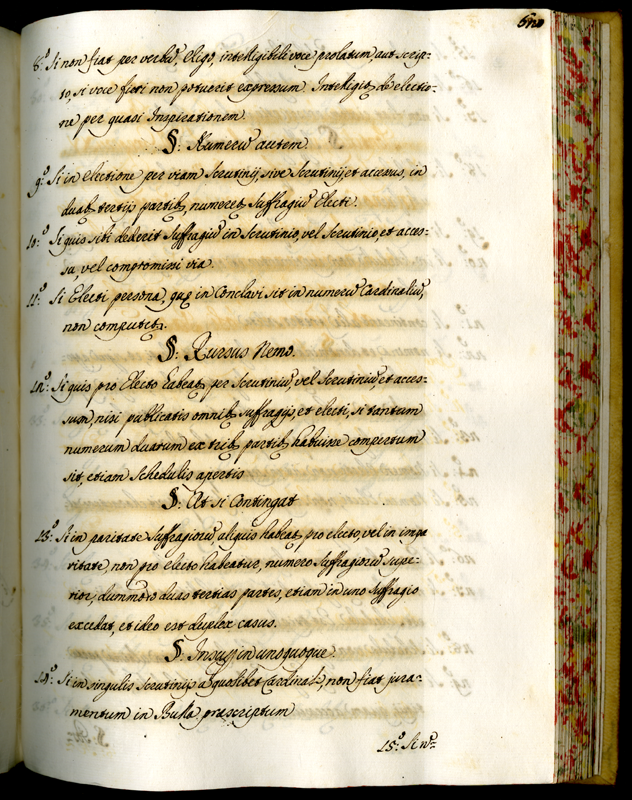 8.º Si non fiat per verbũ, Eligo, intelligibili voce prolatum, aut scrip=
to, si voce fieri non potuerit expressum. Intelligit de electio=
ne per quasi Inspirationem
§: Numerũ autem
9.º Si in Electione per viam Scrutinij, sive Scrutinij, et accessus, in
duab9 tertijs partib9, numeret9 suffragiũ Electi.
10.º Si quis sibi dederit suffragiũ in Scrutinio, vel Scrutinio, et acces=
su, vel compromissi via.
11.º Si Electi persona, quę in Conclavi sit in numerũ Cardinaliũ,
non computet9.
§: Rursus Nemo.
12.º Si quis pro Electo habeat9 per Scrutiniũ, vel Scrutiniũ et acces=
sum, nisi publicatis omnib9 suffragijs et electi, si tantum
numerum duarum ex trib9 partib9 habuisse compertum
sit, etiam Schedulis apertis
§: At si Contingat
13.º Si in paritate suffragiorũ aliquis habeat9 pro electo, vel in impa
ritate, non pro electo habeatur, numero suffragiorũ supe=
rior, dummodo duas tertias partes, etiam in uno suffragio
excedat, et ideo est duplex casus.
§: In unoquoque
14.º Si in singulis Scrutinijs a quolibet Cardinali, non fiat jura=
mentum in Bulla præscriptum
15.º Si nõ=